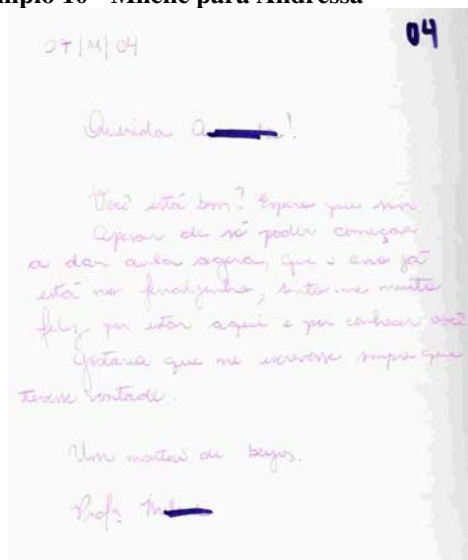 04
07/11/04
Querida A!
Você está bem? Espero que sim.
Apesar de só poder começar
a dar aula agora, que o ano já
está no finalzinho, sinto-me muito
feliz por estar aqui e por conhecer você
Gostaria que me escrevesse sempre que
tivesse vontade.
Um montão de beijos.
Profª M